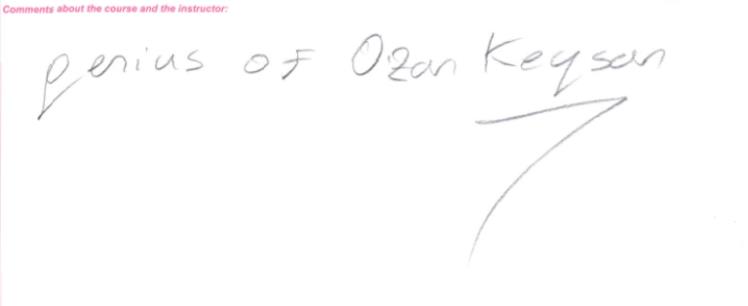 Comments about the course and the instructor:
genius of Ozan Keysan